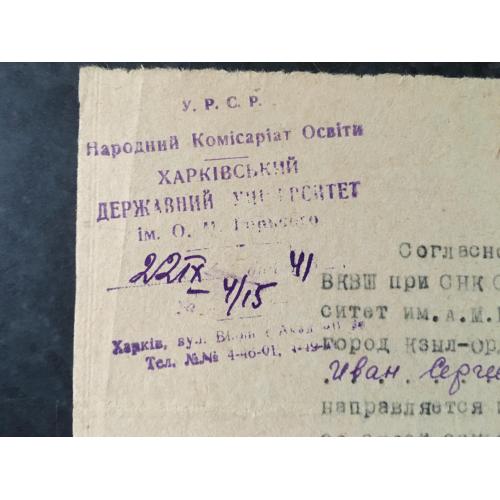 У. Р. С. Р.
Народний Комісаріат Освіти
ХАРКІВСЬКИЙ
ДЕРЖАВНИЙ УНІВЕРСИТЕТ
ім. О. М. Горького
22 IX 41
№ 4/15
Харків, вул.
Тел. №№ 4-46-01,
Согласно
ВКВШ при СНК С
ситет им. А.М.
город Кзыл-Ор
Иван Серге
направляется